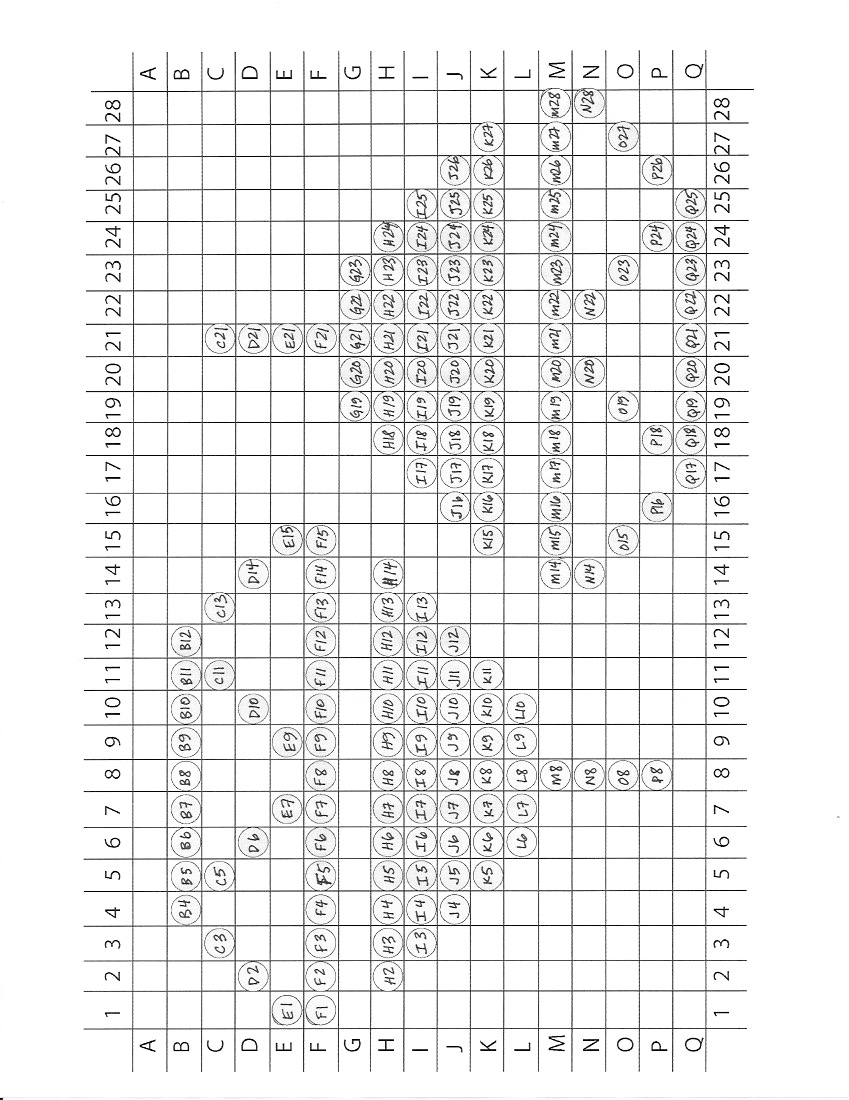 1 2 3 4 5 6 7 8 9 10 11 12 13 14 15 16 17 18 19 20 21 22 23 24 25 26 27 28
A A
B B4 B5 B6 B7 B8 B9 B10 B11 B12 B
C C3 C5 C11 C13 C21 C
D D2 D6 D10 D14 D21 D
E E1 E7 E9 E15 E21 E
F F1 F2 F3 F4 F5 F6 F7 F8 F9 F10 F11 F12 F13 F14 F15 F21 F
G G19 G20 G21 G22 G23 G
H H2 H3 H4 H5 H6 H7 H8 H9 H10 H11 H12 H13 H14 H18 H19 H20 H21 H22 H23 H24 H
I I3 I4 I5 I6 I7 I8 I9 I10 I11 I12 I13 I17 I18 I19 I20 I21 I22 I23 I24 I25 I
J J4 J5 J6 J7 J8 J9 J10 J11 J12 J16 J17 J18 J19 J20 J21 J22 J23 J24 J25 J26 J
K K5 K6 K7 K8 K9 K10 K11 K15 K16 K17 K18 K19 K20 K21 K22 K23 K24 K25 K26 K27 K
L L6 L7 L8 L9 L10 L
M M8 M14 M15 M16 M17 M18 M19 M20 M21 M22 M23 M24 M25 M26 M27 M28 M
N N8 N14 N20 N22 N28 N
O O8 O15 O19 O23 O27 O
P P8 P16 P18 P24 P26 P
Q Q17 Q18 Q19 Q20 Q21 Q22 Q23 Q24 Q25 Q
1 2 3 4 5 6 7 8 9 10 11 12 13 14 15 16 17 18 19 20 21 22 23 24 25 26 27 28